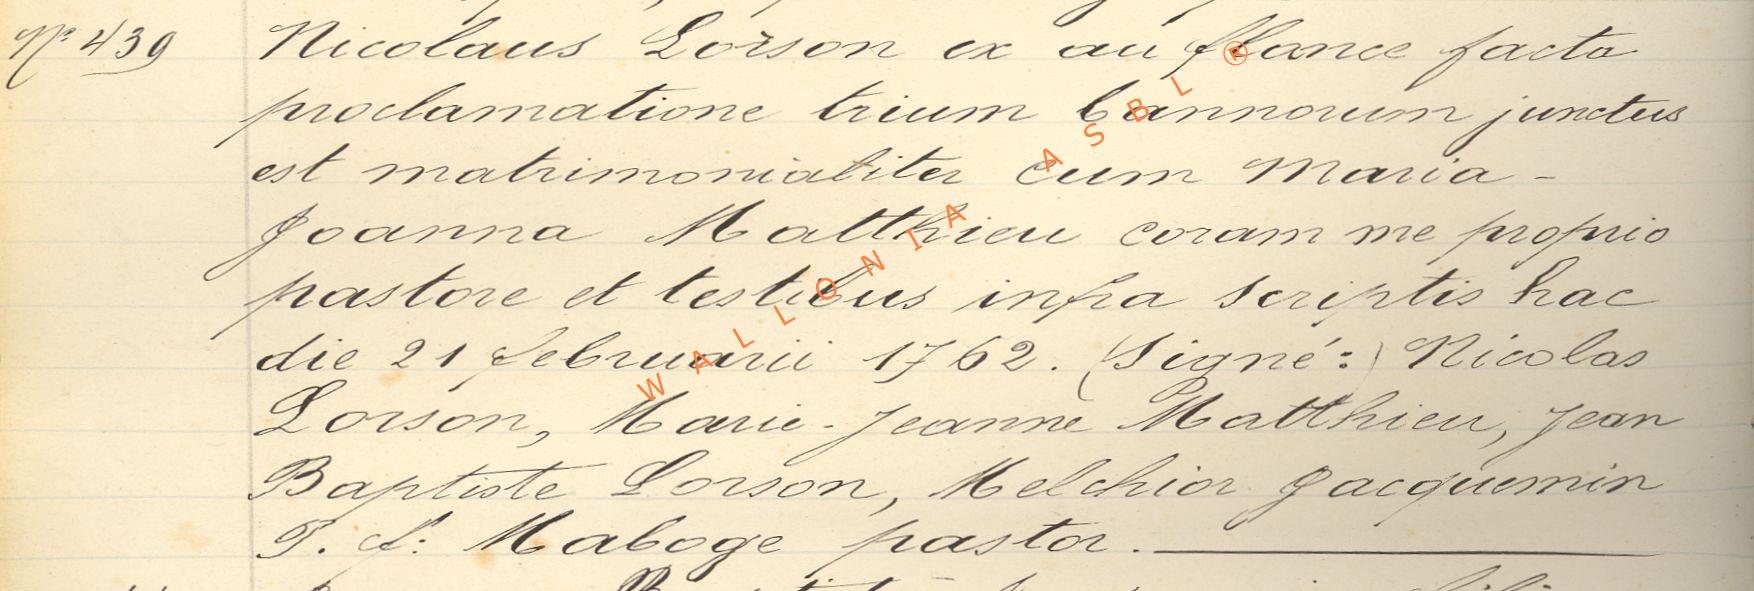 Nº 439 Nicolaus Lorson ex au fflance facta
proclamatione trium bannorum junctus
est matrimonialiter cum Maria-
Joanna Matthieu coram me proprio
pastore et testibus infra scriptis hac
die 21 februarii 1762. (Signé:) Nicolas
Lorson, Marie-Jeanne Matthieu, Jean
Baptiste Lorson, Melchior Jacquemin
J. f: Maboge pastor.
WALLONIA ASBL ®